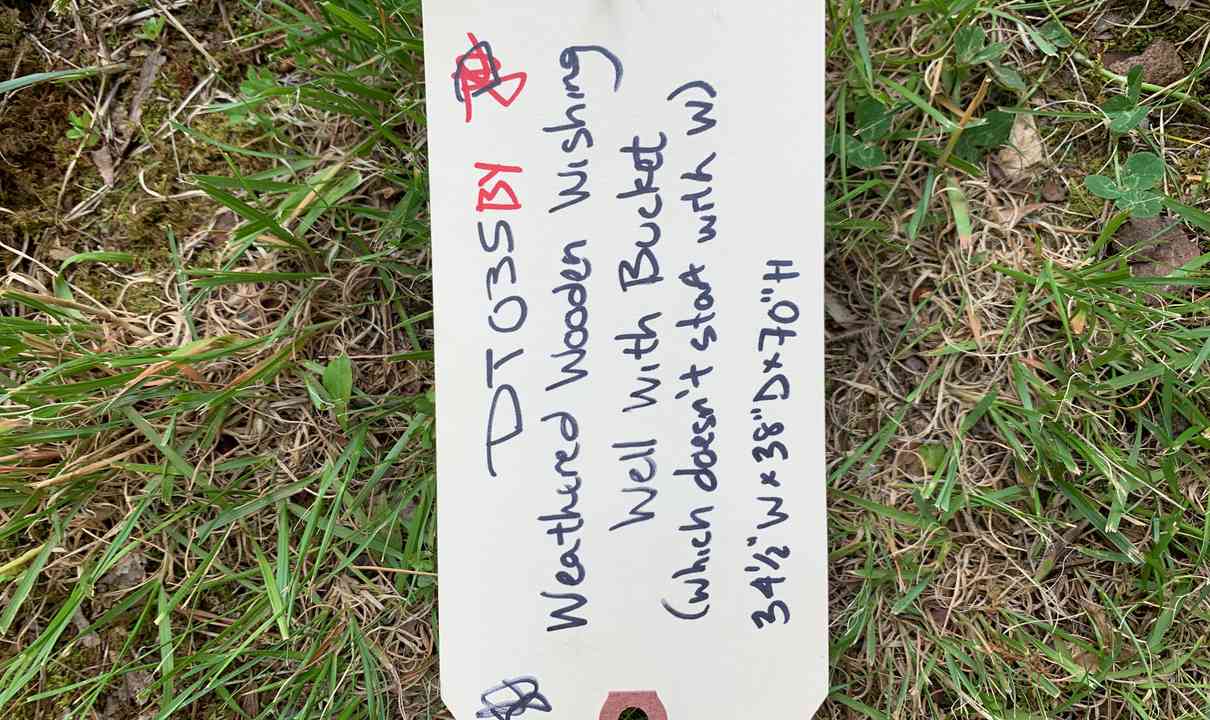 DT03SBY
Weathured Wooden Wishing
Well With Bucket
(which doesn't start with W)
34½" W x 38" D x 70" H